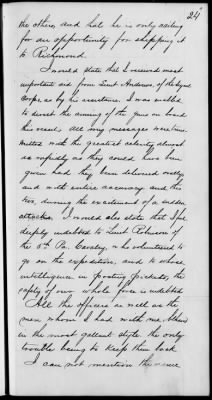 24
the others, and that he is only waiting
for an opportunity for shipping it
to Richmond.
I would state that I received most
important aid from Lieut Andrews, of the Signal
Corps, as by his assistance, I was enabled
to direct the aiming of the guns on board
his vessel. All my messages were trans-
mitted with the greatest celerity, almost
as rapidly as they could have been
given had they been delivered orally
and with entire accuracy and this
too, during the excitement of a sudden
attack. I would also state that I feel
deeply indebted to Lieut Robinson of
the 5th Pa. Cavalry, who volunteered to
go on the expedition, and to whose
intelligence in posting pickets, the
safety of our whole force is indebted.
All the officers as well as the
men whom I had with me, behaved
in the most gallant style, the only
trouble being to keep them back.
I can not mention the name